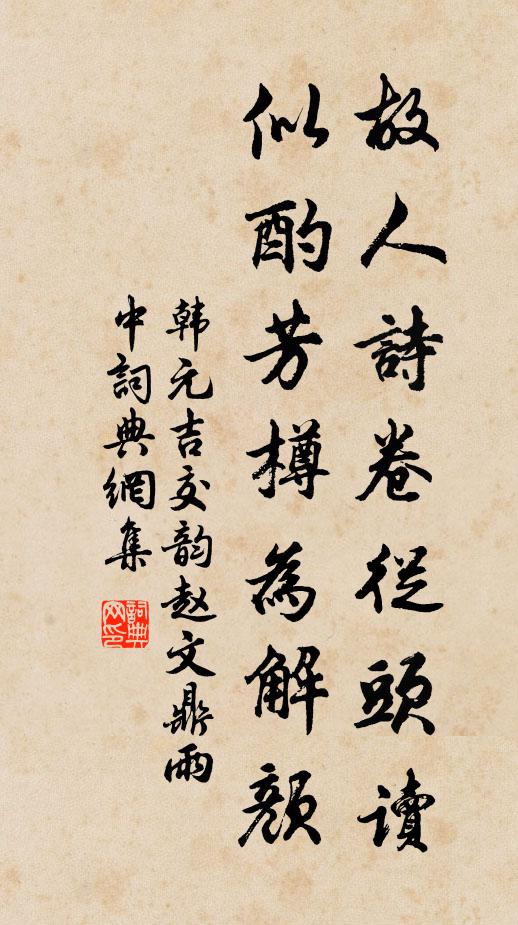 故人詩卷從頭读
似酌芳樽為解顏
韩元吉次韵赵文鼎雨
中詞典網集
詞典网印